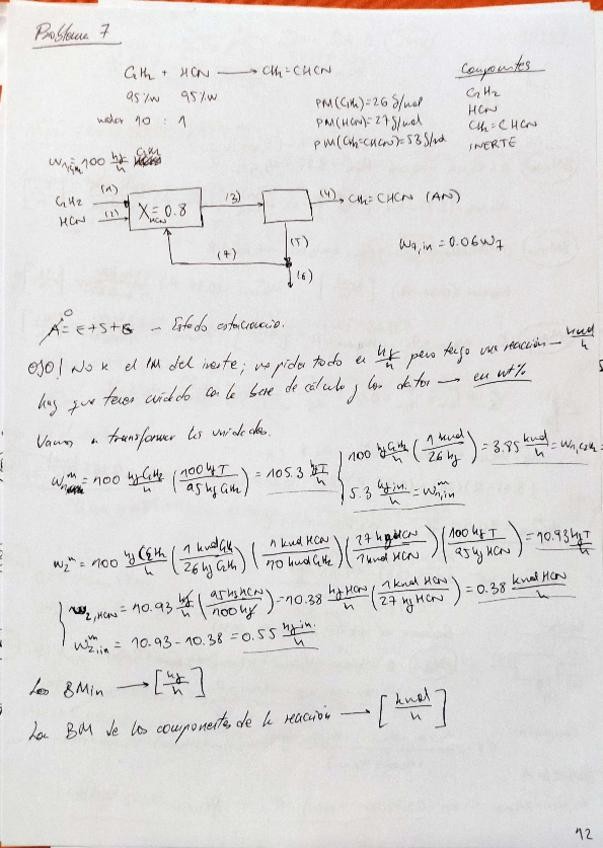 Problema 7
C₂H₂ + HCN → CH₂=CHCN
95%w 95%w
molar 10 : 1
Componentes
C₂H₂
HCN
CH₂=CHCN
INERTE
PM(C₂H₂)=26 g/mol
PM(HCN)=27 g/mol
PM(CH₂=CHCN)=53 g/mol
W₁,C₂H₂=100 kg/h C₂H₂
C₂H₂ (1)
HCN (2)
X_HCN=0.8
(3)
(4) CH₂=CHCN (AN)
(5)
(6)
(7)
W₇,in=0.06W₇
A=E+S+G — Estado estacionario.
OJO! No sé el PM del inerte; me piden todo en kg/h pero tengo una reacción — kmol/h
hay que tener cuidado con la base de cálculo y los datos → en wt%
Vamos a transformar las unidades.
W₁ᵐ=100 kg C₂H₂/h (100 kg T/95 kg C₂H₂)=105.3 kg T/h
100 kg C₂H₂/h (1 kmol/26 kg)=3.85 kmol/h=W₁,C₂H₂
5.3 kg in./h=Wᵐ₁,in
W₂ᵐ=100 kg C₂H₂/h (1 kmol C₂H₂/26 kg C₂H₂)(1 kmol HCN/10 kmol C₂H₂)(27 kg HCN/1 kmol HCN)(100 kg T/95 kg HCN)=10.93 kg T/h
W₂,HCN=10.93 kg/h (95 kg HCN/100 kg)=10.38 kg HCN/h (1 kmol HCN/27 kg HCN)=0.38 kmol HCN/h
Wᵐ₂,in=10.93-10.38=0.55 kg in./h
Los BMin → [kg/h]
Los BM de los componentes de la reacción → [kmol/h]
12